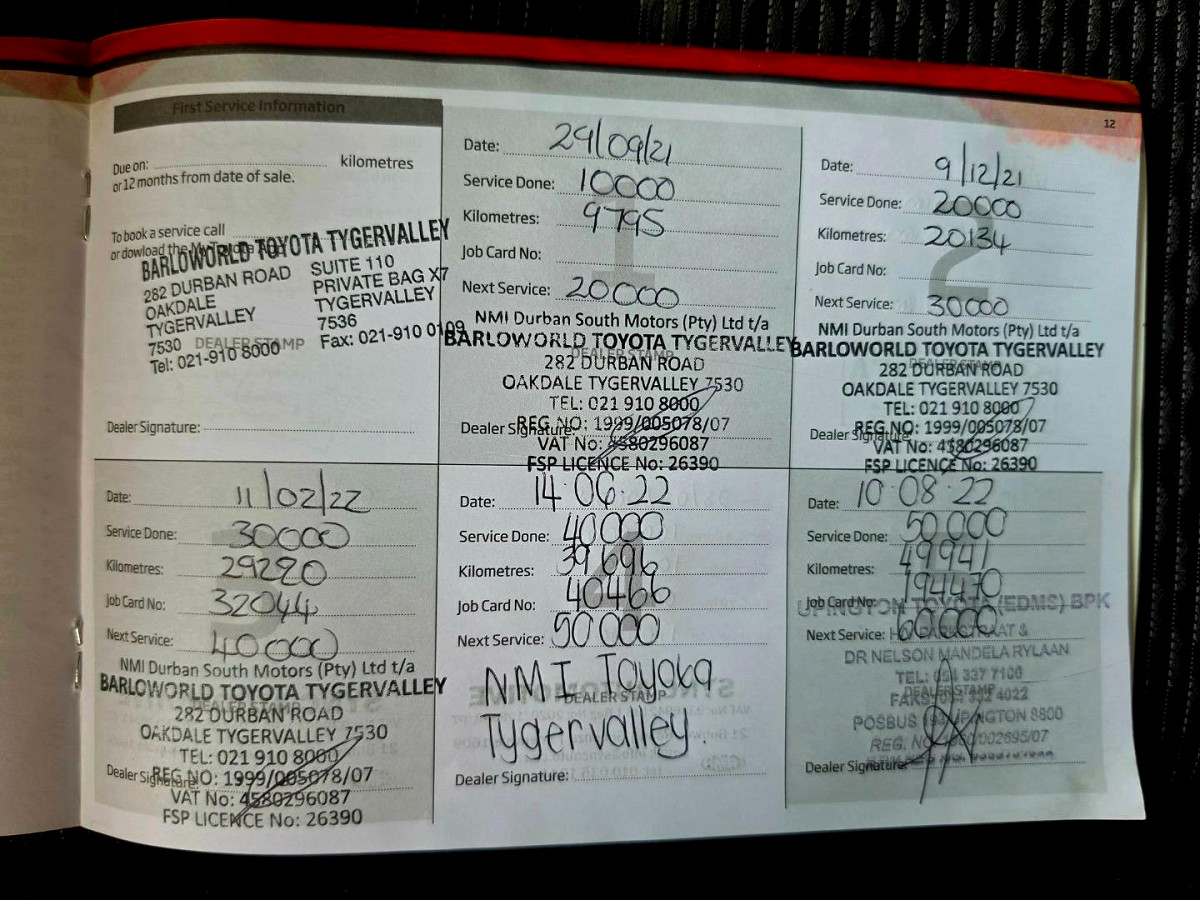 12
First Service Information
Due on: kilometres
or 12 months from date of sale.
To book a service call
or dowload the
BARLOWORLD TOYOTA TYGERVALLEY
282 DURBAN ROAD SUITE 110
OAKDALE PRIVATE BAG X7
TYGERVALLEY TYGERVALLEY
7530 7536
DEALER STAMP
Tel: 021-910 8000 Fax: 021-910 0109
Dealer Signature:
1
Date: 29/09/21
Service Done: 10000
Kilometres: 9795
Job Card No:
Next Service: 20000
NMI Durban South Motors (Pty) Ltd t/a
BARLOWORLD TOYOTA TYGERVALLEY
DEALER STAMP
282 DURBAN ROAD
OAKDALE TYGERVALLEY 7530
TEL: 021 910 8000
REG.NO: 1999/005078/07
Dealer Signature:
VAT No: 4580296087
FSP LICENCE No: 26390
2
Date: 9/12/21
Service Done: 20000
Kilometres: 20134
Job Card No:
Next Service: 30000
NMI Durban South Motors (Pty) Ltd t/a
BARLOWORLD TOYOTA TYGERVALLEY
DEALER STAMP
282 DURBAN ROAD
OAKDALE TYGERVALLEY 7530
TEL: 021 910 8000
REG.NO: 1999/005078/07
Dealer Signature
VAT No: 4580296087
FSP LICENCE No: 26390
3
Date: 11/02/22
Service Done: 30000
Kilometres: 29220
Job Card No: 32044
Next Service: 40000
NMI Durban South Motors (Pty) Ltd t/a
BARLOWORLD TOYOTA TYGERVALLEY
DEALER STAMP
282 DURBAN ROAD
OAKDALE TYGERVALLEY 7530
TEL: 021 910 8000
Dealer Signature:
REG.NO: 1999/005078/07
VAT No: 4580296087
FSP LICENCE No: 26390
4
Date: 14.06.22
Service Done: 40000
Kilometres: 39696
Job Card No: 40466
Next Service: 50000
NMI Toyota
DEALER STAMP
Tygervalley.
Dealer Signature:
Date: 10.08.22
Service Done: 50000
Kilometres: 49941
Job Card No: 194470
UPINGTON TOYOTA (EDMS) BPK
Next Service: 60000
DR NELSON MANDELA RYLAAN
TEL: 054 337 7100
DEALER STAMP
4022
POSBUS UPINGTON 8800
REG. NO /002695/07
Dealer Signature